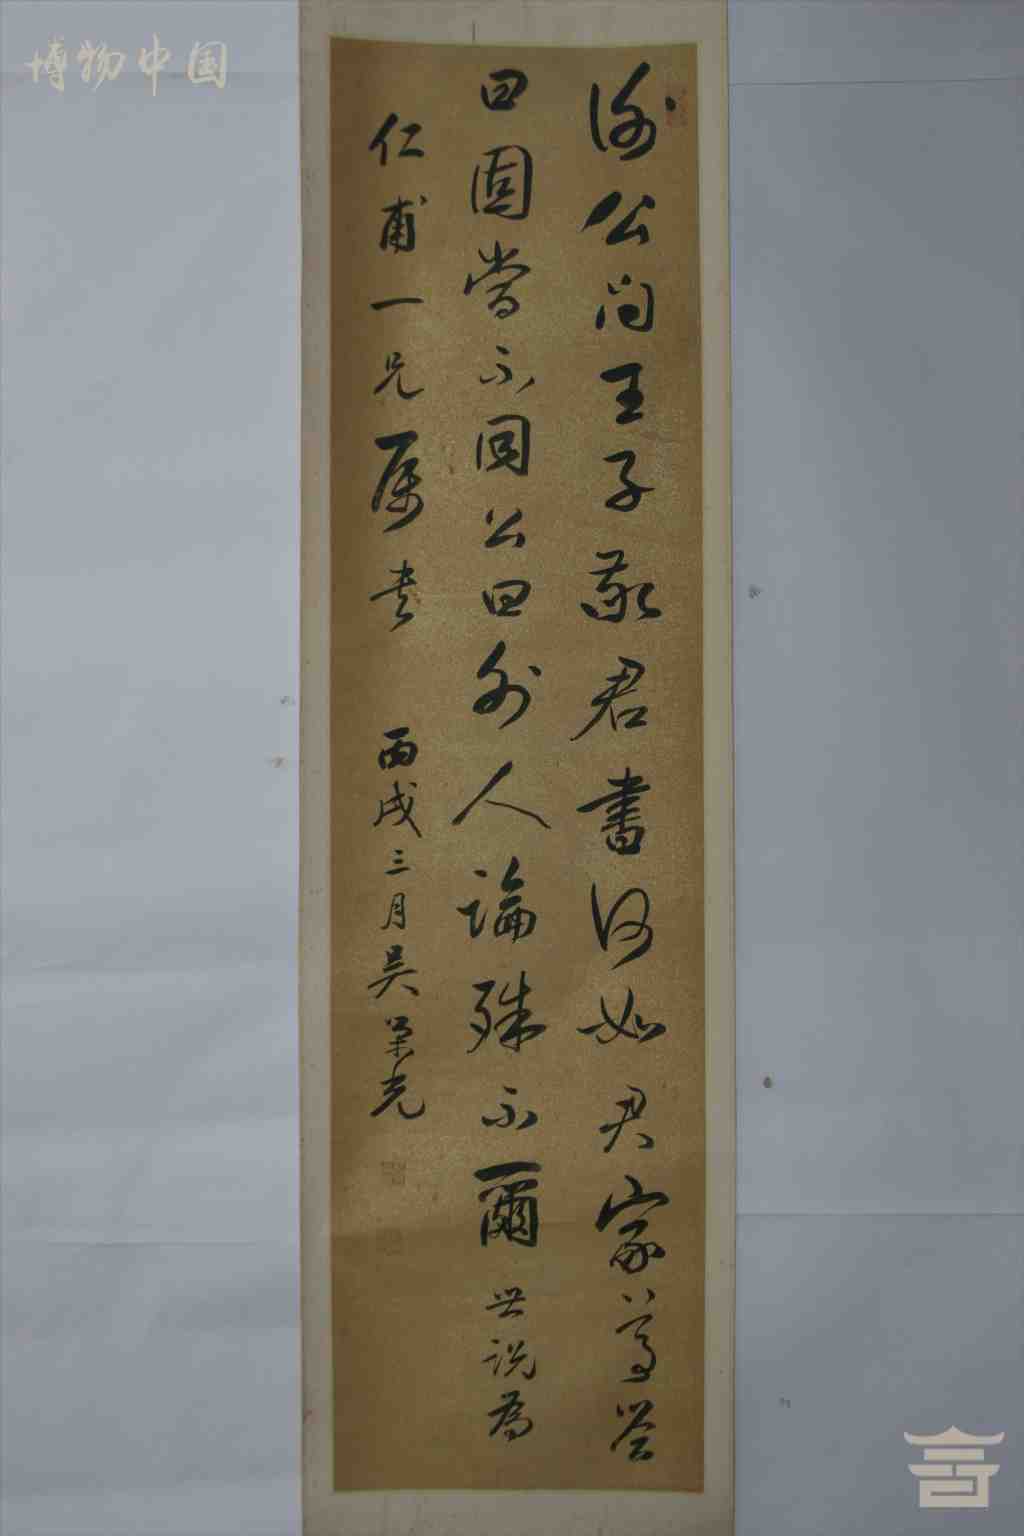 谢公问王子敬君书何如君家尊答
曰固当不同公曰外人论殊不尔世说为
仁甫一兄属书 丙戌三月吴荣光
博物中国